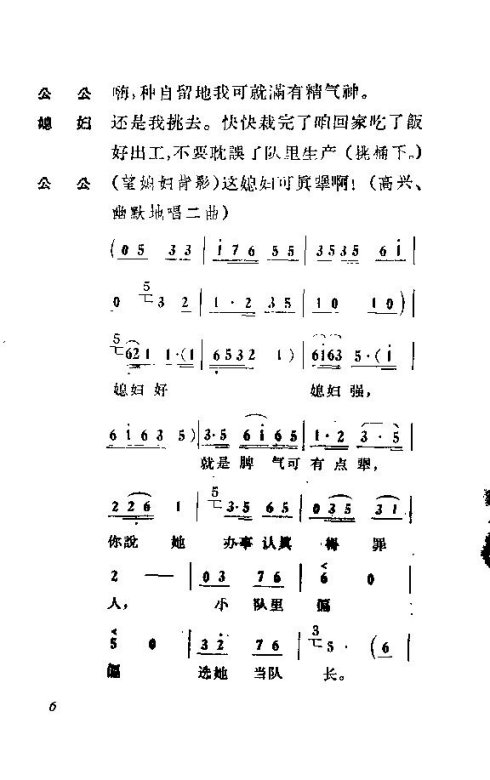 公 公 嗨,种自留地我可就滿有精气神。
媳 妇 还是我挑去。快快栽完了咱回家吃了飯
好出工,不要耽誤了队里生产(挑桶下。)
公 公 (望媳妇背影)这媳妇可眞犟啊!(高兴、
幽默地唱二曲)
(0 5 3 3 | 1 7 6 5 5 | 3 5 3 5 6 1 |
0 5 3 2 | 1 · 2 3 5 | 1 0 1 0 ) |
5 6 2 1 1 · ( 1 | 6 5 3 2 1 ) | 6 1 6 3 5 · ( 1 |
媳妇 好 媳妇 强,
6 1 6 3 5 ) | 3 · 5 6 1 6 5 | 1 · 2 3 · 5 |
就是 脾 气可 有 点 犟,
2 2 6 1 | 5 3 · 5 6 5 | 0 3 5 3 1 |
你說 她 办事 认眞 得 罪
2 — | 0 3 7 6 | 6 0 |
人, 小 队里 偏
5 0 | 3 2 7 6 | 3 5 · ( 6 |
偏 选她 当队 长。
6